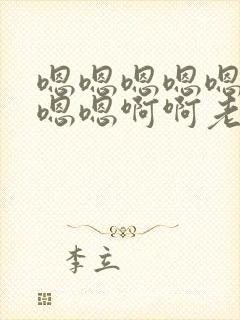 嗯嗯嗯嗯嗯
嗯嗯啊啊老
李立